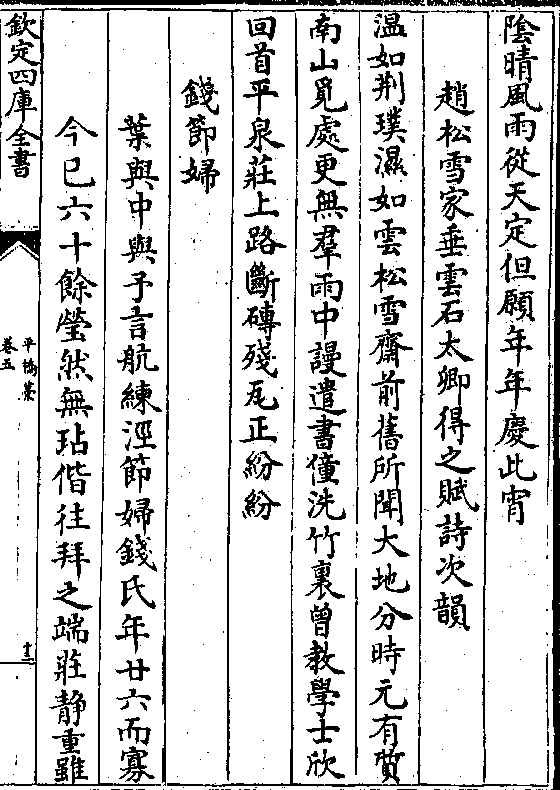 陰晴風雨從天定但願年年慶此宵
趙松雪家垂雲石太卿得之賦詩次韻
温如荆璞濕如雲松雪齋前舊所聞大地分時元有質
南山覓處更無羣雨中謾遣書僮洗竹裏曾教學士欣
回首平泉莊上路斷磚殘瓦正紛紛
錢節婦
葉與中與予言航練涇節婦錢氏年廿六而寡
今已六十餘瑩然無玷偕往拜之端莊静重雖
欽定四庫全書
平橋藁
卷五
十三